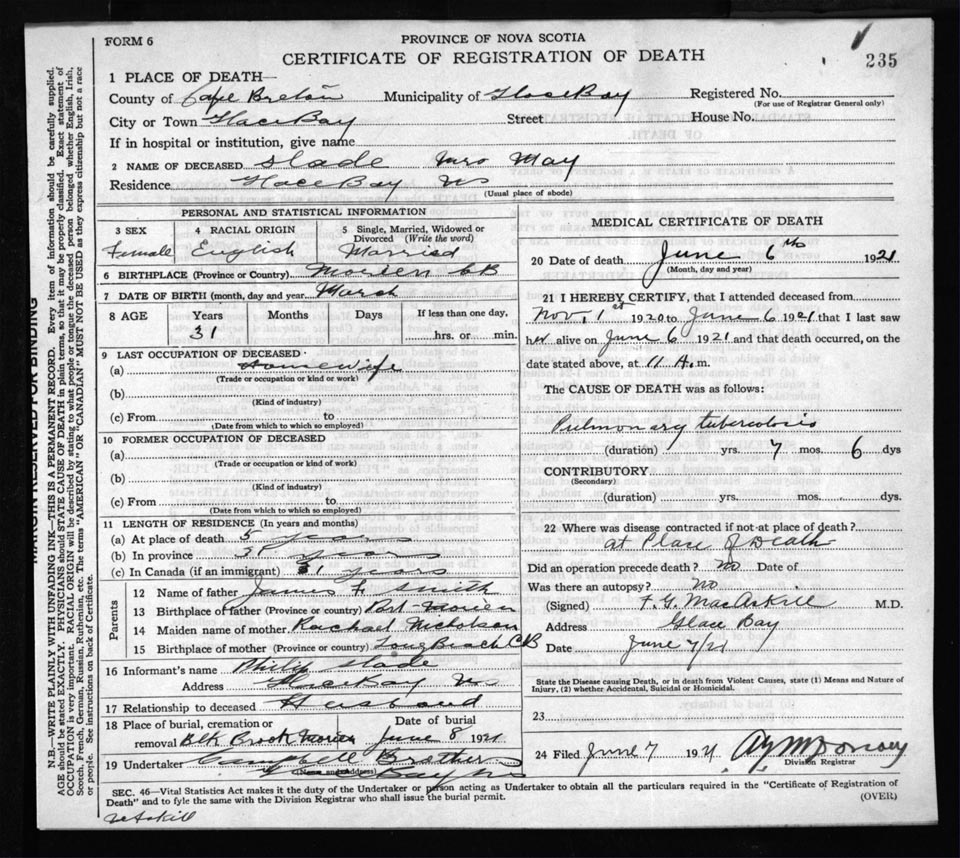 FORM 6
PROVINCE OF NOVA SCOTIA
CERTIFICATE OF REGISTRATION OF DEATH
235
1 PLACE OF DEATH—
County of Cape Breton Municipality of Glace Bay Registered No.
(For use of Registrar General only)
City or Town Glace Bay Street House No.
If in hospital or institution, give name
2 NAME OF DECEASED Slade Mrs May
Residence Glace Bay NS
(Usual place of abode)
PERSONAL AND STATISTICAL INFORMATION
3 SEX 4 RACIAL ORIGIN 5 Single, Married, Widowed or Divorced (Write the word)
Female English Married
6 BIRTHPLACE (Province or Country) Morien CB
7 DATE OF BIRTH (month, day and year) March
8 AGE Years Months Days If less than one day,
31 hrs. or min.
9 LAST OCCUPATION OF DECEASED
(a) Housewife
(Trade or occupation or kind or work)
(b)
(Kind of industry)
(c) From to
(Date from which to which so employed)
10 FORMER OCCUPATION OF DECEASED
(a)
(Trade or occupation or kind of work)
(b)
(Kind of industry)
(c) From to
(Date from which to which so employed)
11 LENGTH OF RESIDENCE (In years and months)
(a) At place of death 5 years
(b) In province 31 years
(c) In Canada (if an immigrant) 31 years
Parents
12 Name of father James Smith
13 Birthplace of father (Province or country) Pt Morien
14 Maiden name of mother Rachael Nicholson
15 Birthplace of mother (Province or country) Long Beach CB
16 Informant's name Philip Slade
Address Glace Bay NS
17 Relationship to deceased Husband
18 Place of burial, cremation or removal Blk Brook Morien
Date of burial June 8 1921
19 Undertaker Campbell Brothers
(Name and Address) Bay NS
MEDICAL CERTIFICATE OF DEATH
20 Date of death June 6th 1921
(Month, day and year)
21 I HEREBY CERTIFY, that I attended deceased from
Nov. 1st 1920 to June 6 1921 that I last saw
her alive on June 6 1921 and that death occurred, on the
date stated above, at 11 A.m.
The CAUSE OF DEATH was as follows:
Pulmonary tuberculosis
(duration) yrs. 7 mos. 6 dys
CONTRIBUTORY
(Secondary)
(duration) yrs. mos. dys.
22 Where was disease contracted if not at place of death?
at Place of Death
Did an operation precede death? No Date of
Was there an autopsy? No
(Signed) F. G. MacAskill M.D.
Address Glace Bay
Date June 7/21
State the Disease causing Death, or in death from Violent Causes, state (1) Means and Nature of
Injury, (2) whether Accidental, Suicidal or Homicidal.
23
24 Filed June 7 1921
Division Registrar
SEC. 46—Vital Statistics Act makes it the duty of the Undertaker or person acting as Undertaker to obtain all the particulars required in the "Certificate of Registration of
Death" and to fyle the same with the Division Registrar who shall issue the burial permit.
(OVER)
MARGIN RESERVED FOR BINDING
N.B.—WRITE PLAINLY WITH UNFADING INK—THIS IS A PERMANENT RECORD. Every item of information should be carefully supplied.
AGE should be stated EXACTLY. PHYSICIANS should STATE CAUSE OF DEATH in plain terms, so that it may be properly classified. Exact statement of
OCCUPATION is very important. RACIAL ORIGIN will be described by stating to what people or tongue the deceased person belonged, whether English, Irish,
Scotch, French, German, Russian, Ruthenian, etc. The terms "AMERICAN" OR "CANADIAN" MUST NOT BE USED as they express citizenship but not a race
or people. See instructions on back of Certificate.